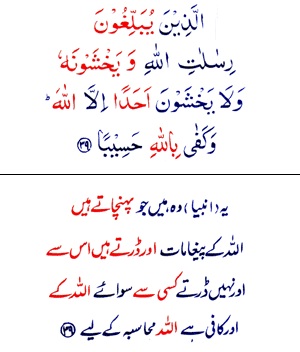 الَّذِيْنَ يُبَلِّغُوْنَ
رِسٰلٰتِ اللّٰهِ وَ يَخْشَوْنَهٗ
وَلَا يَخْشَوْنَ اَحَدًا اِلَّا اللّٰهَ ؕ
وَكَفٰى بِاللّٰهِ حَسِيْبًا ۝۳۹
یہ (انبیا) وہ ہیں جو پہنچاتے ہیں
اللہ کے پیغامات اور ڈرتے ہیں اس سے
اور نہیں ڈرتے کسی سے سوائے اللہ کے
اور کافی ہے اللہ محاسبہ کے لیے ۝۳۹